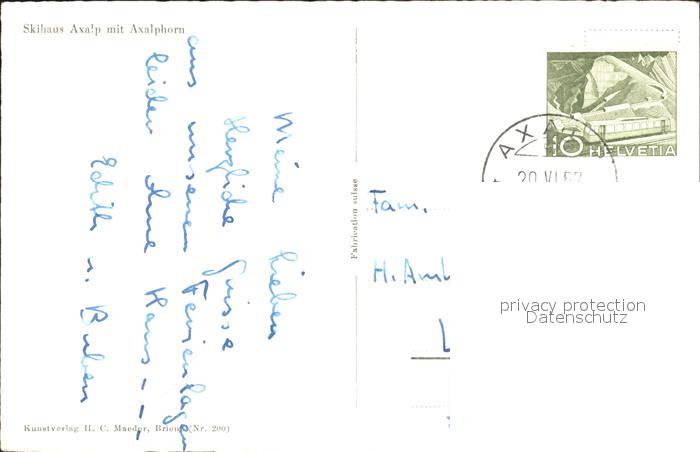 Skihaus Axalp mit Axalphorn
Meine Lieben
Herzliche Grüsse
aus unserem Ferienlager
leider ohne Hans - -
Edith u. Buben
Fabrication suisse
Kunstverlag H. C. Maeder, Brienz (Nr. 200)
10 HELVETIA
AXALP
20 VI 57
Fam.
H. Amb
privacy protection
Datenschutz